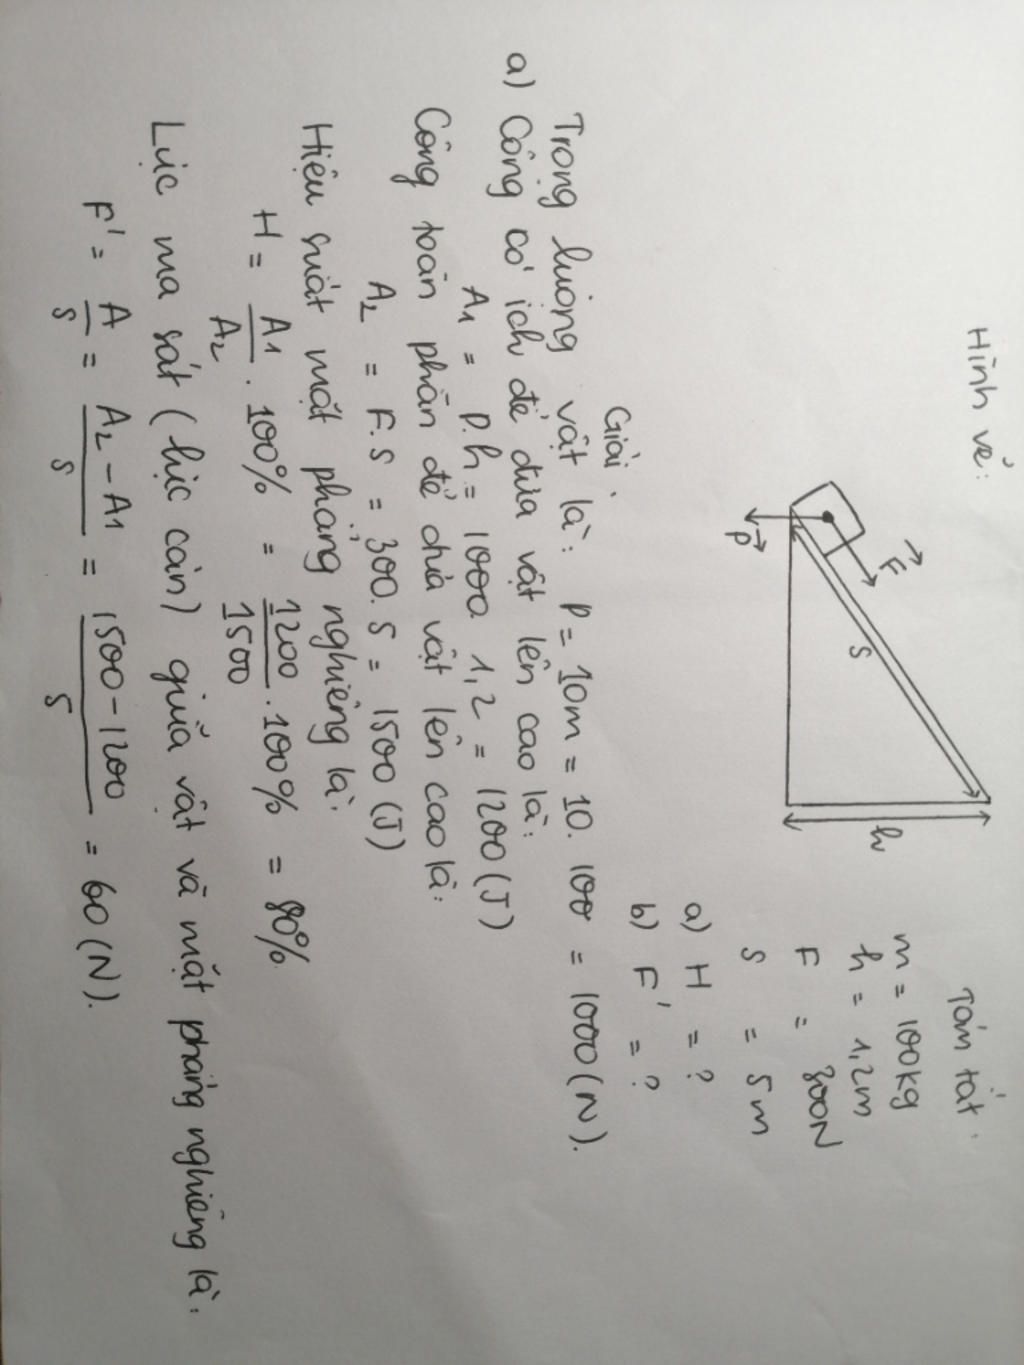 Hình vẽ:
F
P
S
h
Tóm tắt:
m = 100kg
h = 1,2m
F = 300N
s = 5m
a) H = ?
b) F' = ?
Giải.
Trọng lượng vật là: P = 10m = 10. 100 = 1000(N).
a) Công có ích để đưa vật lên cao là:
A1 = P.h = 1000. 1,2 = 1200(J)
Công toàn phần để đưa vật lên cao là:
A2 = F.S = 300.5 = 1500(J)
Hiệu suất mặt phẳng nghiêng là:
H = A1/A2 . 100% = 1200/1500 . 100% = 80%
Lực ma sát (lực cản) giữa vật và mặt phẳng nghiêng là:
F' = A/s = A2 - A1/s = 1500 - 1200/5 = 60(N).